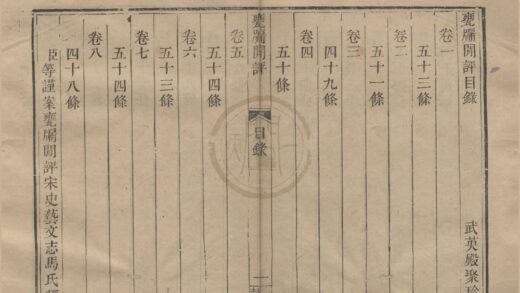 甕牖閒評目錄
武英殿聚珍
卷一
五十三條
卷二
五十一條
卷三
四十九條
卷四
五十條
甕牖閒評
目錄
一
卷五
五十四條
卷六
五十三條
卷七
五十四條
卷八
四十八條
臣等謹案甕牖閒評宋史藝文志馬氏